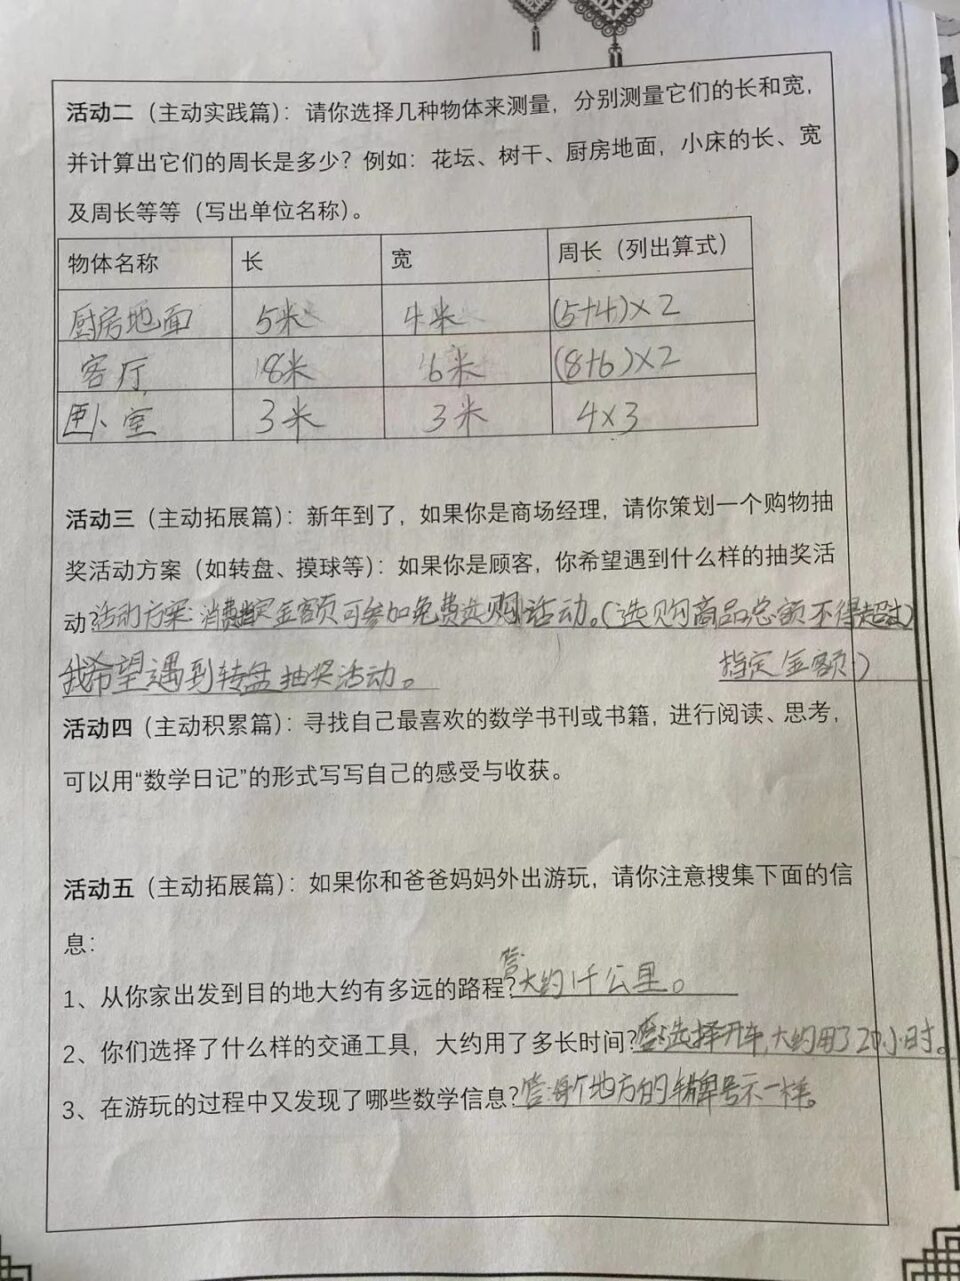 活动二（主动实践篇）：请你选择几种物体来测量，分别测量它们的长和宽，
并计算出它们的周长是多少？例如：花坛、树干、厨房地面，小床的长、宽
及周长等等（写出单位名称）。
物体名称 长 宽 周长（列出算式）
厨房地面 5米 4米 (5+4)×2
客厅 8米 6米 (8+6)×2
卧室 3米 3米 4×3
活动三（主动拓展篇）：新年到了，如果你是商场经理，请你策划一个购物抽
奖活动方案（如转盘、摸球等）：如果你是顾客，你希望遇到什么样的抽奖活
动?活动方案:消费指定金额可参加免费选购活动。(选购商品总额不得超过
指定金额)
我希望遇到转盘抽奖活动。
活动四（主动积累篇）：寻找自己最喜欢的数学书刊或书籍，进行阅读、思考，
可以用“数学日记”的形式写写自己的感受与收获。
活动五（主动拓展篇）：如果你和爸爸妈妈外出游玩，请你注意搜集下面的信
息：
1、从你家出发到目的地大约有多远的路程?答:大约1千公里。
2、你们选择了什么样的交通工具，大约用了多长时间?答:选择开车,大约用了20小时。
3、在游玩的过程中又发现了哪些数学信息?答:每个地方的车牌号不一样。